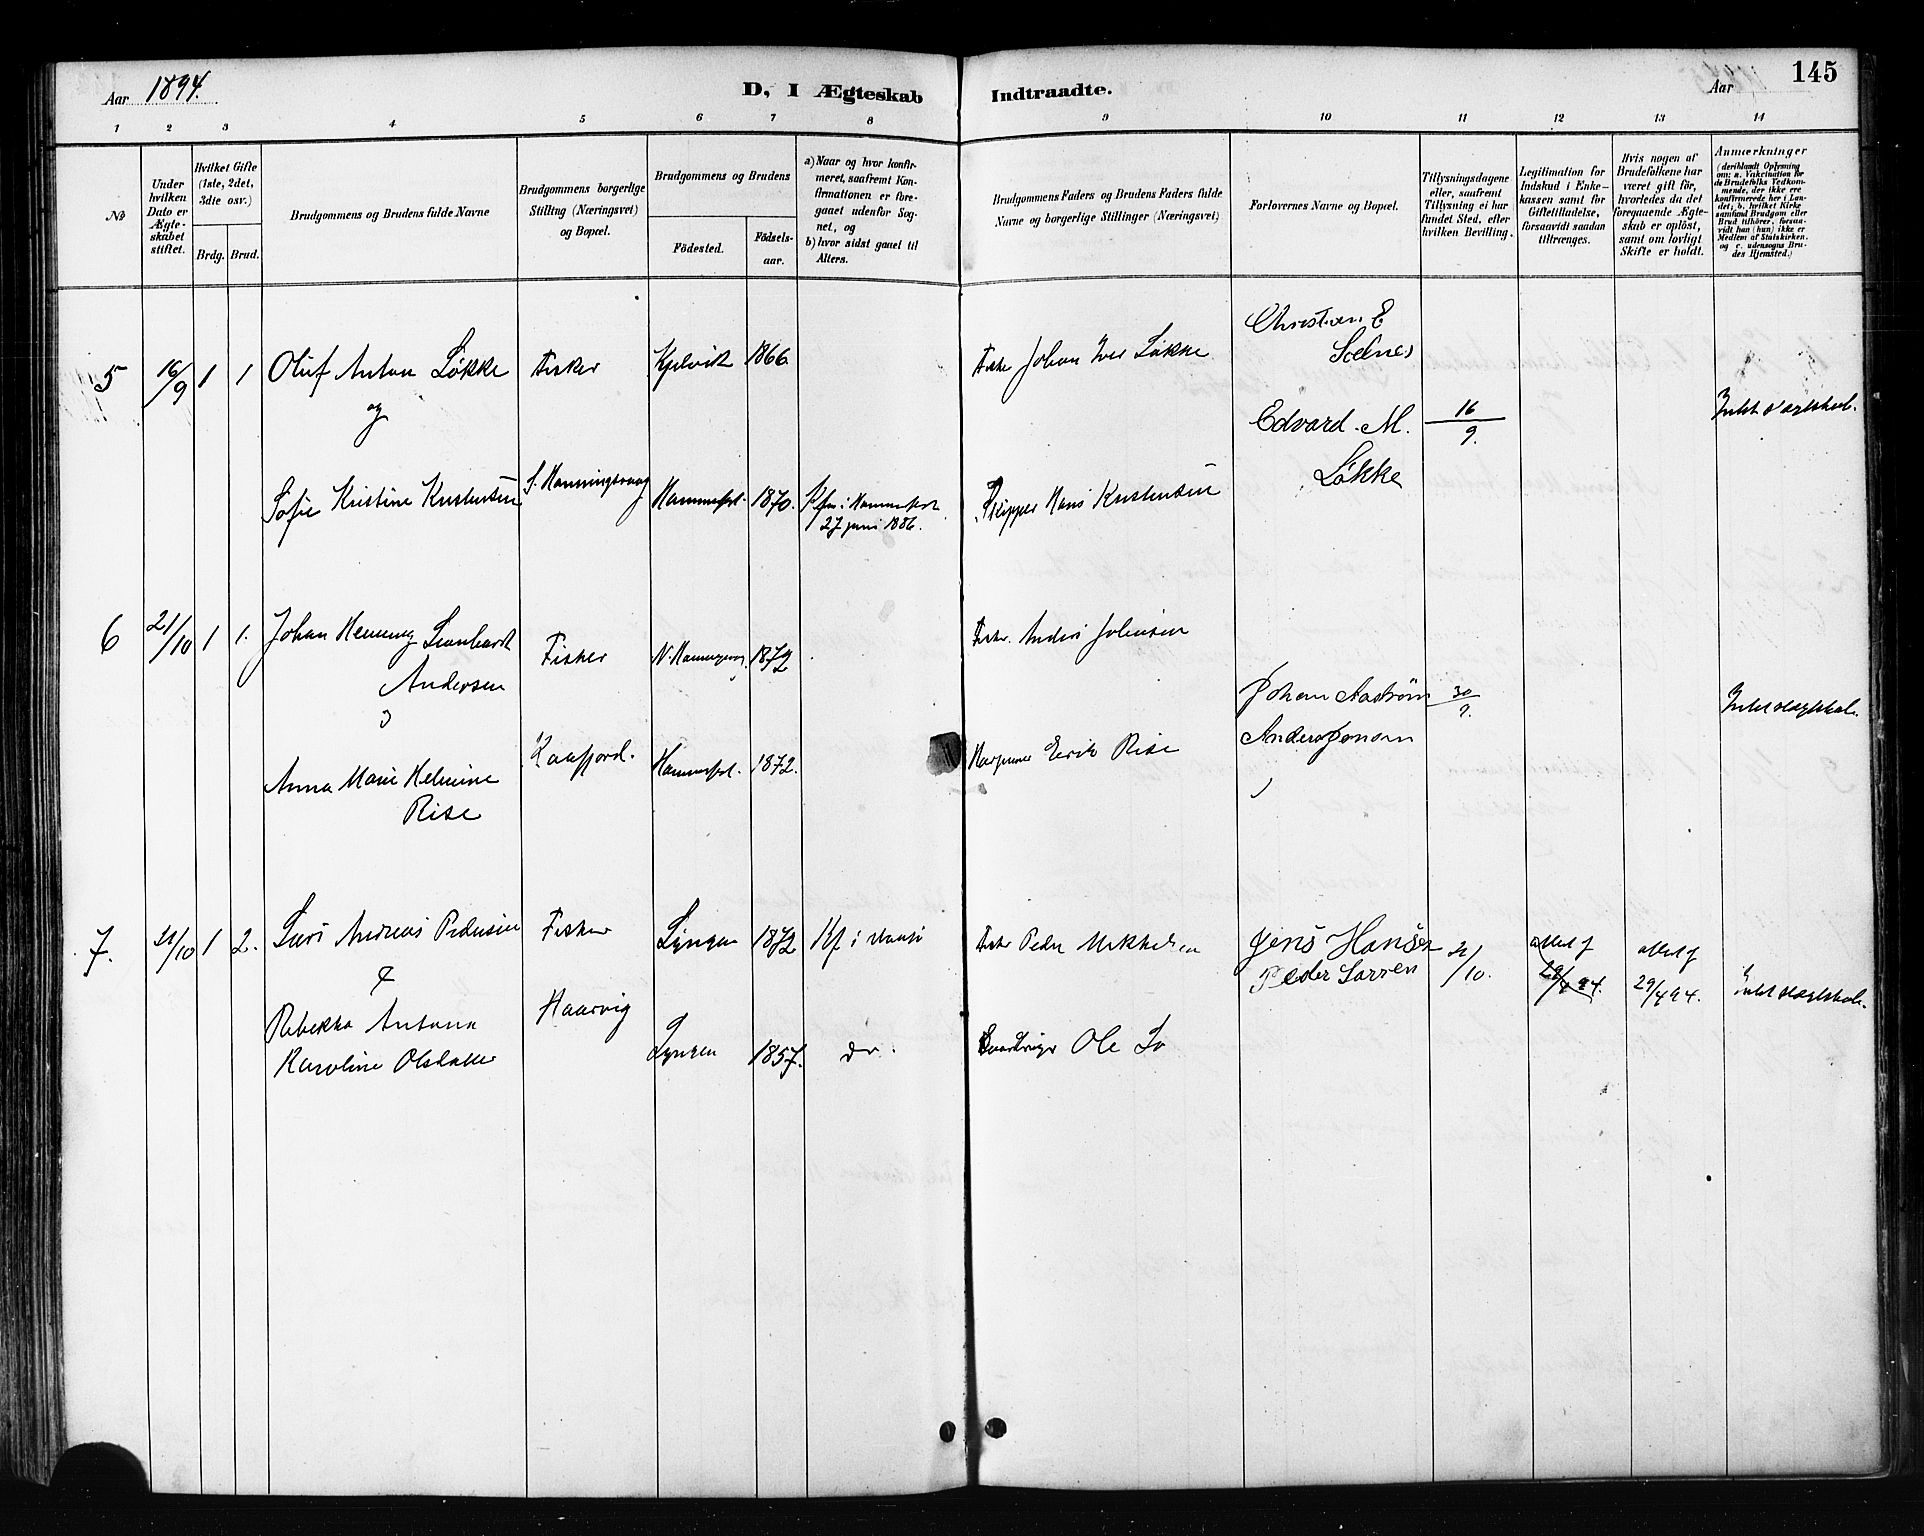 Aar 1894.
D, I Ægteskab Indtraadte.
Aar
145
1 2 3 4 5 6 7 8 9 10 11 12 13 14
No
Under hvilken Dato er Ægteskabet stiftet.
Hvilket Gifte (1ste, 2det, 3dte osv.)
Brdg. Brud.
Brudgommens og Brudens fulde Navne
Brudgommens borgerlige Stilling (Næringsvei) og Bopæl.
Brudgommens og Brudens
Födested.
Födsels-aar.
a) Naar og hvor konfirmeret, saafremt Konfirmationen er foregaaet udenfor Sognet, og
b) hvor sidst gaaet til Alters.
Brudgommens Faders og Brudens Faders fulde Navne og borgerlige Stillinger (Næringsvei)
Forlovernes Navne og Bopæl.
Tillysningsdagene eller, saafremt Tillysning ei har fundet Sted, efter hvilken Bevilling.
Legitimation for Indskud i Enkekassen samt for Giftetilladelse, forsaavidt saadan tiltrænges.
Hvis nogen af Brudefolkene har været gift för, hvorledes da det foregaaende Ægteskab er oplöst, samt om lovligt Skifte er holdt.
Anmærkninger
(deriblandt Oplysning om: a. Vakcination for de Brudefolks Vedkommende, der ikke ere konfirmerede her i Landet; b. hvilket Kirkesamfund Brudgom eller Brud tilhörer, forsaavidt han (hun) ikke er Medlem af Statskirken, og c. udensogns Brudes Hjemsted.)
5 16/9 1 1 Oluf Anton Løkke Fisker Kjelvik 1866 Fisker Johan Iver Løkke
Christian E
Soelnes
og
Edvard M. 16/9.
Løkke
Sofie Kristine Kristensen S. Honningsvaag Hammerfest. 1870. Kfm i Hammerfest
27 juni 1886.
Skipper Hans Kristensen
6 21/10 1 1. Johan Henning Leonhardt
Andersen
Fisker N. Honningsvaag 1872
Fisker Anders Johnsen
Johan Aaström 30/9.
Anders Jensen
Anna Marie Helmine
Rise
Kaafjord. Hammerfest. 1872.
Eerik Rise
7. 21/10 1 2. Lars Andreas Pedersen Fisker Lyngen 1872 Kf i Maasø Fisker Peder Mikkelsen
Jens Hansen
Peder Larsen
21/10.
Attest f
29/4 94.
Attest f
29/4 94.
&
Rebekka Antona
Karoline Olsdatter
Haarvig Lyngen 1857. do. Ole